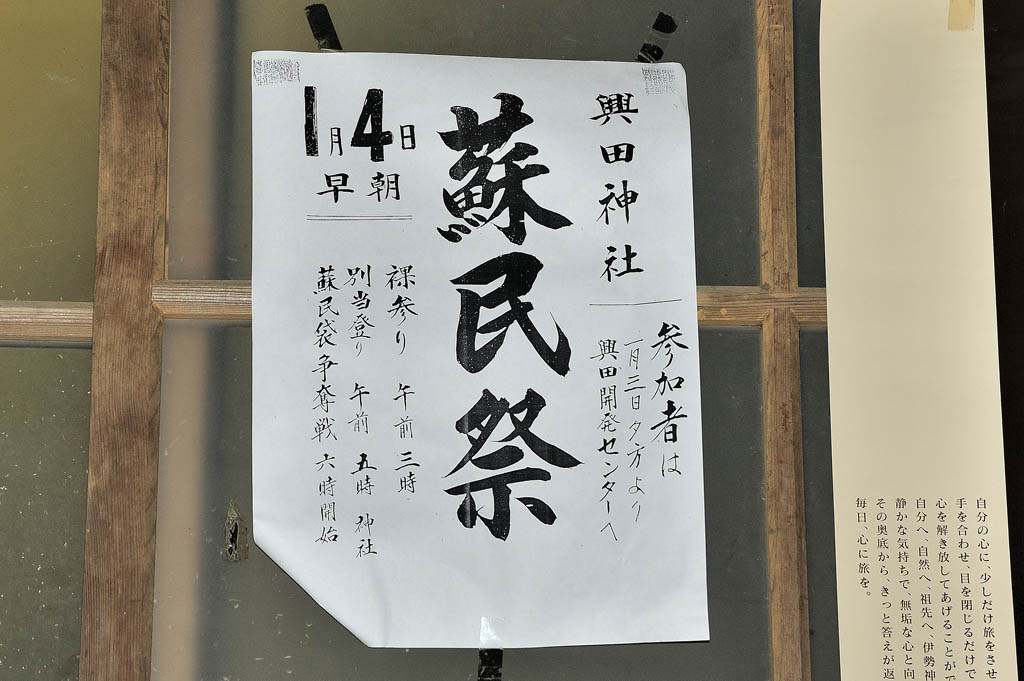 興田神社
参加者は
一月三日夕方より
興田開発センターへ
蘇民祭
1月4日
早朝
裸参り 午前三時
別当登り 午前五時 神社
蘇民袋争奪戦 六時開始
自分の心に、少しだけ旅をさせ
手を合わせ、目を閉じるだけで
心を解き放してあげることがで
自分へ、自然へ、祖先へ、伊勢神
静かな気持ちで、無垢な心と向
その奥底から、きっと答えが返
毎日、心に旅を。